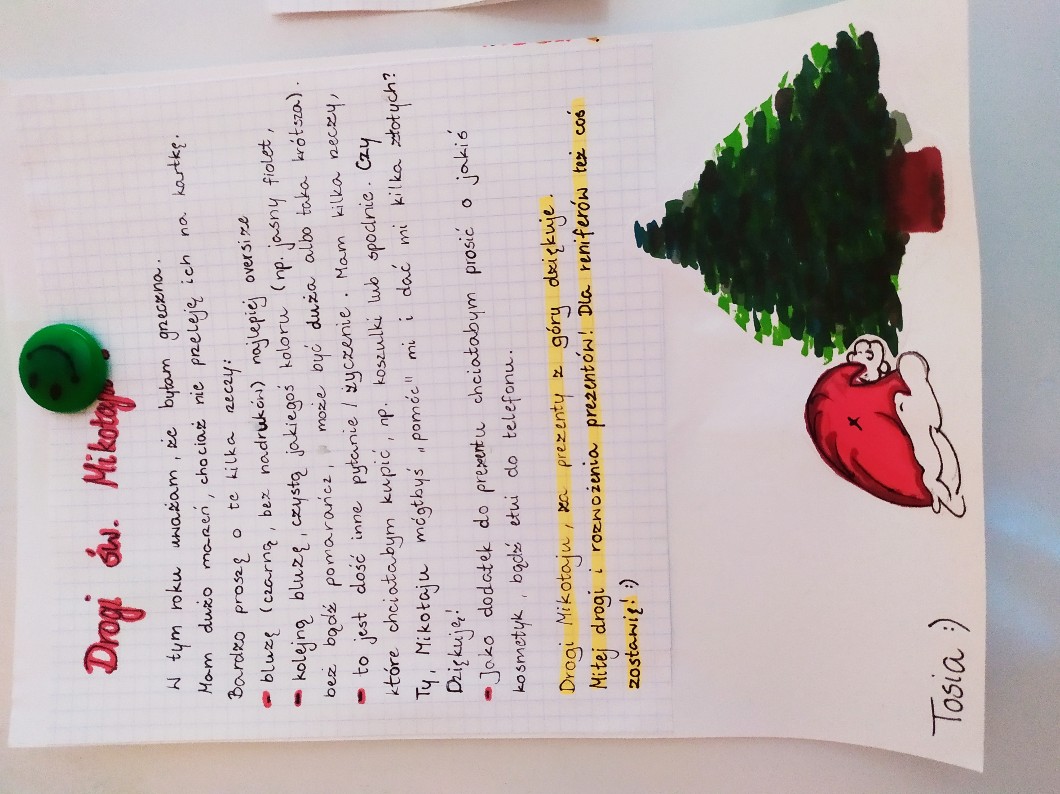 Drogi św. Mikołaju
W tym roku uważam, że byłam grzeczna.
Mam dużo marzeń, chociaż nie przeleję ich na kartkę.
Bardzo proszę o te kilka rzeczy:
- bluzę (czarną, bez nadruków) najlepiej oversize
- kolejną bluzę, czystą jakiegoś koloru (np. jasny fiolet,
beż bądź pomarańcz, może być duża albo taka krótsza).
- to jest dość inne pytanie / życzenie. Mam kilka rzeczy,
które chciałabym kupić, np. koszulki lub spodnie. Czy
Ty, Mikołaju mógłbyś „pomóc" mi i dać mi kilka złotych?
Dziękuję!
- Jako dodatek do prezentu chciałabym prosić o jakiś
kosmetyk, bądź etui do telefonu.
Drogi Mikołaju, za prezenty z góry dziękuję.
Miłej drogi i rozwożenia prezentów! Dla reniferów też coś
zostawię! :)
Tosia :)